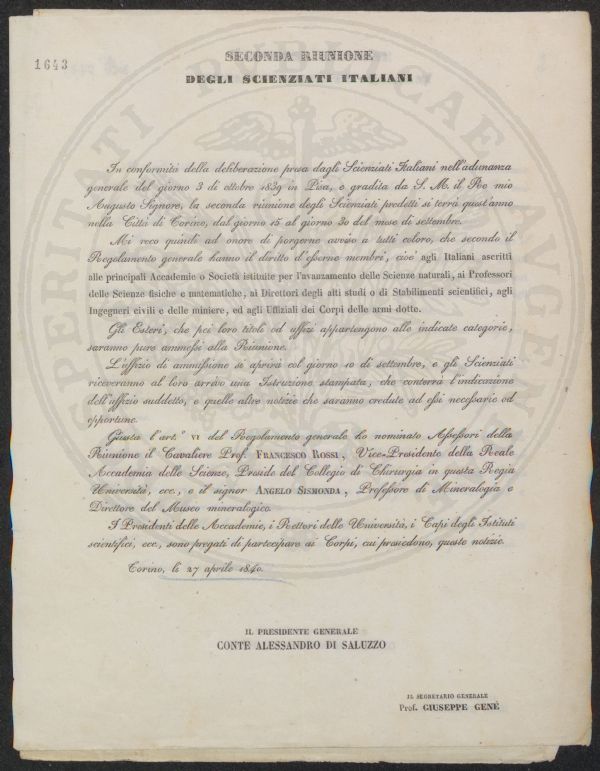 1643
SECONDA RIUNIONE
DEGLI SCIENZIATI ITALIANI
In conformità della deliberazione presa dagli Scienziati Italiani nell'adunanza
generale del giorno 3 di ottobre 1839 in Pisa, e gradita da S. M. il Re mio
Augusto Signore, la seconda riunione degli Scienziati predetti si terrà quest'anno
nella Città di Torino, dal giorno 15 al giorno 30 del mese di settembre.
Mi reco quindi ad onore di porgerne avviso a tutti coloro, che secondo il
Regolamento generale hanno il diritto d'esserne membri, cioè agli Italiani ascritti
alle principali Accademie o Società istituite per l'avanzamento delle Scienze naturali, ai Professori
delle Scienze fisiche e matematiche, ai Direttori degli alti studi o di Stabilimenti scientifici, agli
Ingegneri civili e delle miniere, ed agli Uffiziali dei Corpi delle armi dotte.
Gli Esteri, che pei loro titoli od uffizi appartengono alle indicate categorie,
saranno pure ammessi alla Riunione.
L'uffizio di ammissione si aprirà col giorno 10 di settembre, e gli Scienziati
riceveranno al loro arrivo una Istruzione stampata, che conterrà l'indicazione
dell'uffizio suddetto, e quelle altre notizie che saranno credute ad essi necessarie od
opportune.
Giusta l'art.° VI del Regolamento generale ho nominato Assessori della
Riunione il Cavaliere Prof. FRANCESCO ROSSI, Vice-Presidente della Reale
Accademia delle Scienze, Preside del Collegio di Chirurgia in questa Regia
Università, ecc., e il signor ANGELO SISMONDA, Professore di Mineralogia e
Direttore del Museo mineralogico.
I Presidenti delle Accademie, i Rettori delle Università, i Capi degli Istituti
scientifici, ecc., sono pregati di partecipare ai Corpi, cui presiedono, queste notizie.
Torino, li 27 aprile 1840.
IL PRESIDENTE GENERALE
CONTE ALESSANDRO DI SALUZZO
IL SEGRETARIO GENERALE
Prof. GIUSEPPE GENÉ